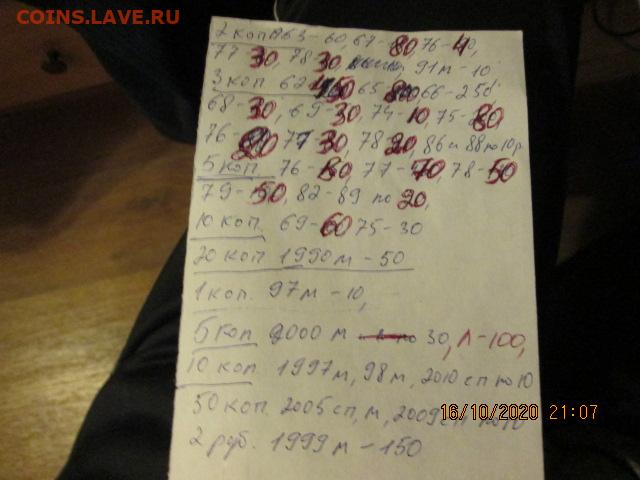 COINS.LAVE.RU
2 коп 1963-60, 67-80, 76-40,
77-30, 78-30, 91м-10
3 коп 62-450 65-800 66-250
68-30, 69-30, 74-10, 75-80,
76- 77-30, 78-20, 86 и 88 по 10р
5 коп 76-80, 77-70, 78-50
79-50, 82-89 по 20,
10 коп 69-60 75-30
20 коп 1990м-50
1 коп. 97м-10,
5 коп 2000 м 30, Л-100,
10 коп. 1997м, 98м, 2010 сп по 10
50 коп. 2005 сп, м, 2009 сп по 10
2 руб. 1999м-150
16/10/2020 21:07